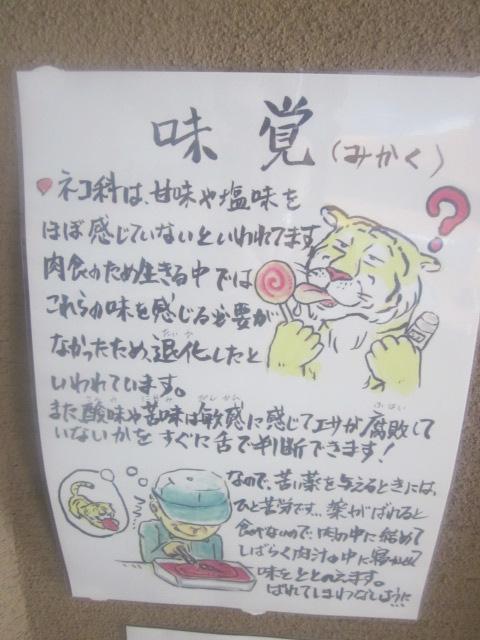 味覚(みかく)
ネコ科は、甘味や塩味を
ほぼ感じていないといわれてます
肉食のため生きる中では
これらの味を感じる必要が
なかったため、退化したと
たいか
いわれています。
また酸味や苦味は敏感に感じてエサが腐敗して
さんみ にがみ びんかん ふはい
いないかをすぐに舌で判断できます!
なので、苦い薬を与えるときには、
ひと苦労です…薬がばれると
食べないので、肉の中に詰めて
しばらく肉汁の中に寝かせて
味をととのえます。
ばれてしまわないように
?